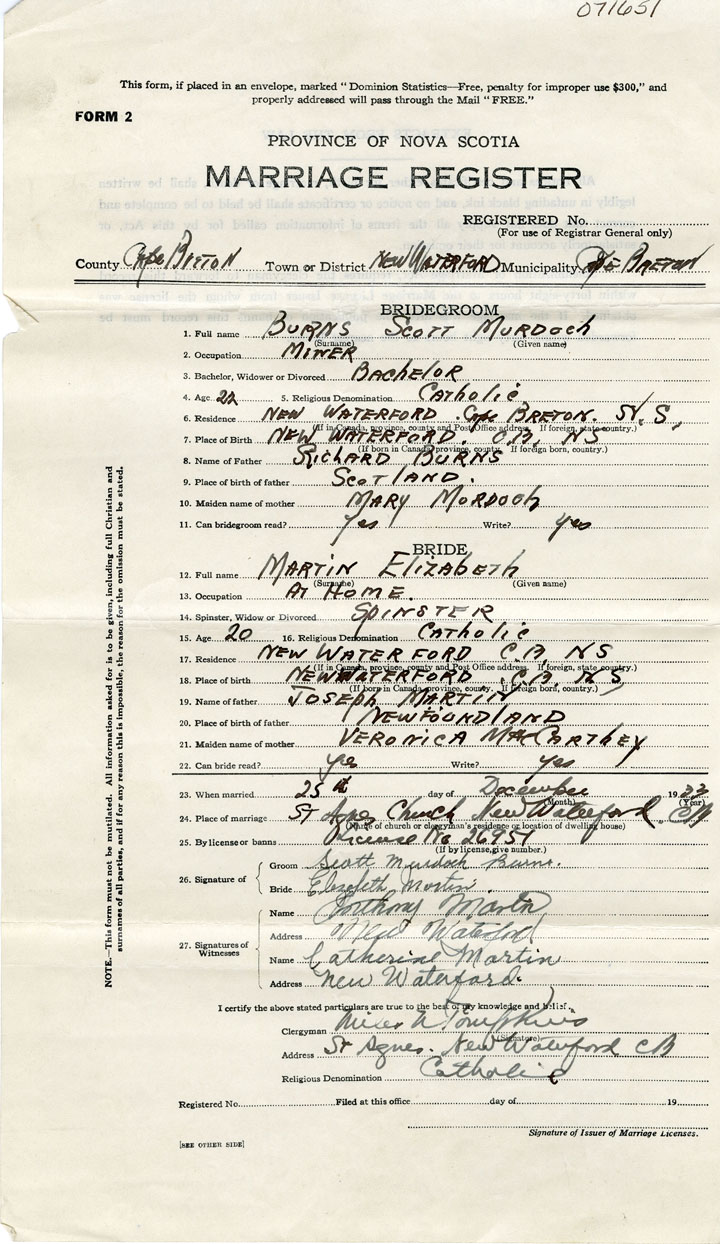 071651
This form, if placed in an envelope, marked "Dominion Statistics—Free, penalty for improper use $300," and
properly addressed will pass through the Mail "FREE."
FORM 2
PROVINCE OF NOVA SCOTIA
MARRIAGE REGISTER
REGISTERED No.
(For use of Registrar General only)
County Cape Breton Town or District New Waterford Municipality Cape Breton
BRIDEGROOM
1. Full name Burns Scott Murdoch
(Surname) (Given name)
2. Occupation Miner
3. Bachelor, Widower or Divorced Bachelor
4. Age 22 5. Religious Denomination Catholic
6. Residence New Waterford. Cape Breton. N.S,
(If in Canada, province, county and Post Office address. If foreign, state country.)
7. Place of Birth New Waterford. C.B, NS
(If born in Canada, province, county. If foreign born, country.)
8. Name of Father Richard Burns
9. Place of birth of father Scotland.
10. Maiden name of mother Mary Murdoch
11. Can bridegroom read? Yes Write? yes
BRIDE
12. Full name Martin Elizabeth
(Surname) (Given name)
13. Occupation At Home.
14. Spinster, Widow or Divorced Spinster
15. Age 20 16. Religious Denomination Catholic
17. Residence New Waterford C.B, NS
(If in Canada, province, county and Post Office address. If foreign, state country.)
18. Place of birth New Waterford. C.B, N S
(If born in Canada, province, county. If foreign born, country.)
19. Name of father Joseph Martin
20. Place of birth of father Newfoundland
21. Maiden name of mother Veronica MacCarthey
22. Can bride read? yes Write? yes
23. When married 25th day of December 1933
(Month) (Year)
24. Place of marriage St Agnes Church New Waterford, CB
(Name of church or clergyman's residence or location of dwelling house)
25. By license or banns License No 26951
(If by license, give number.)
26. Signature of Groom Scott Murdoch Burns.
Bride Elizabeth Martin
27. Signatures of Witnesses
Name Anthony Martin
Address New Waterford
Name Catherine Martin
Address New Waterford.
I certify the above stated particulars are true to the best of my knowledge and belief.
Clergyman Miles N Tompkins
(Signature)
Address St Agnes. New Waterford CB
Religious Denomination Catholic
Registered No. Filed at this office day of 19
Signature of Issuer of Marriage Licenses.
[SEE OTHER SIDE]
NOTE.—This form must not be mutilated. All information asked for is to be given, including full Christian and
surnames of all parties, and if for any reason this is impossible, the reason for the omission must be stated.